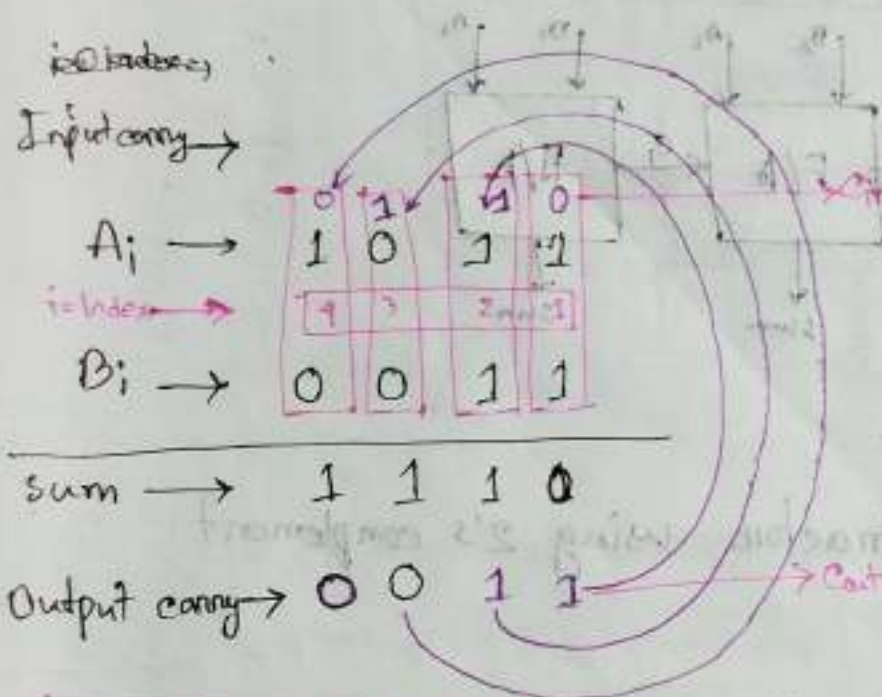 Input carry →
0 1 1 0 Cin
Ai → 1 0 1 1
i=Index → 4 3 2 1
Bi → 0 0 1 1
sum → 1 1 1 0
Output carry → 0 0 1 1 → Cout